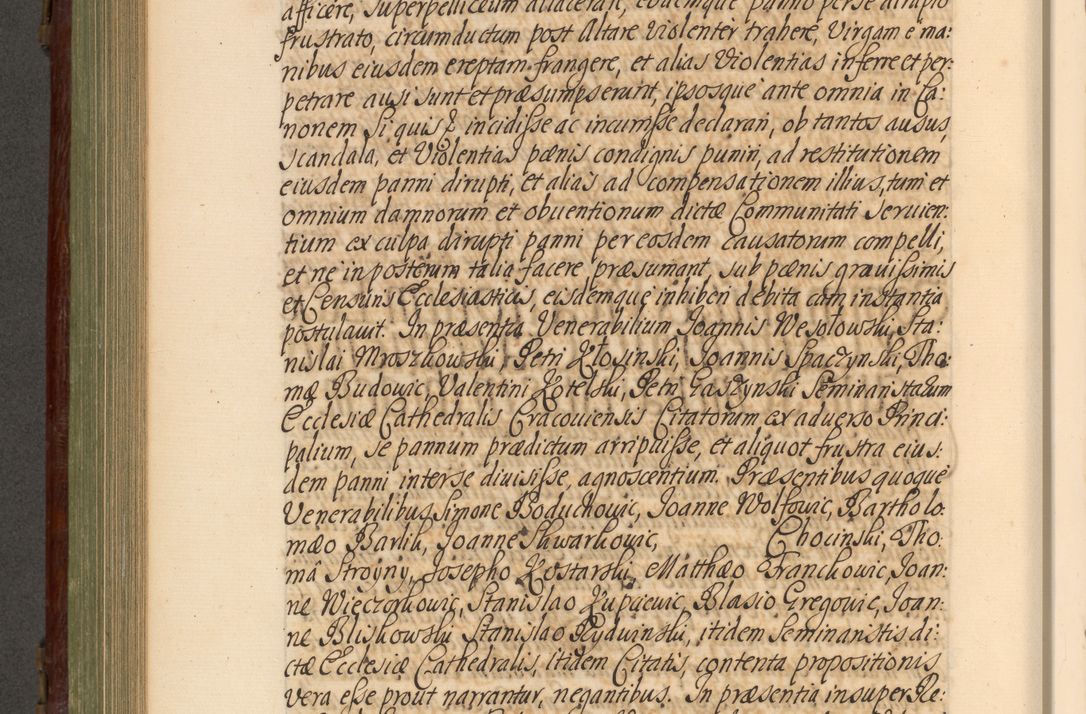 afficere, superpelliceum dilacerari, eodemque panno per se dirupto
frustrato, circumductum post Altare violenter trahere, Virgam e ma:
nibus eiusdem ereptam frangere, et alias Violentias inferre et per:
petrare ausi sunt et præsumpserunt, ipsosque ante omnia in Ca:
nonem Si quis & incidisse ac incurrisse declarari, ob tantos ausus,
scandala, et Violentias pænis condignis puniri, ad restitutionem
eiusdem panni dirupti, et alias ad compensationem illius, tum et
omnium damnorum et obuentionum dictæ Communitati seruien:
tium ex culpa dirupti panni per eosdem causatorum compelli,
et ne in posterum talia facere præsumant, sub pænis grauissimis
et Censuris Ecclesiasticis, eisdemque inhiberi debita cum instantia
postulauit. In præsentia Venerabilium Joannis Wesołowski, Sta:
nislai Mroszkowski, Petri Kłosinski, Joannis Spaczynski, Tho:
mæ Budowic, Valentini Kotelski, Petri Gaszynski Seminaristarum
Ecclesiæ Cathedralis Cracouiensis Citatorum ex aduerso Princi:
palium, se pannum prædictum arripuisse, et aliquot frustra eius:
dem panni inter se diuisisse, agnoscentium. Præsentibus quoque
Venerabilibus Simone Boduchowic, Joanne Wolfowic, Bartholo:
mæo Barlik, Joanne Skwarkowic, Chocinski, Tho:
mâ Stroyny, Josepho Kostarski, Matthæo Franckowic, Joan:
ne Więczorkowic, Stanislao Kupicewic, Blasio Gregowic, Joan:
ne Bliskowski Stanislao Rydwinski, itidem Seminaristis di:
ctæ Ecclesiæ Cathedralis, itidem Citatis, contenta propositionis
vera esse prout narrantur, negantibus. In præsentia insuper Re: